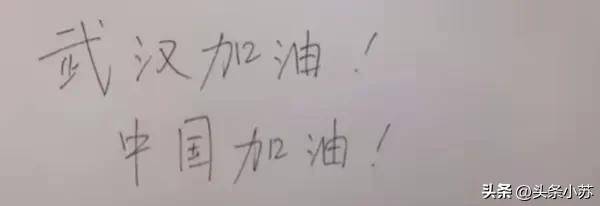 武汉加油！
中国加油！
头条 @头条小苏